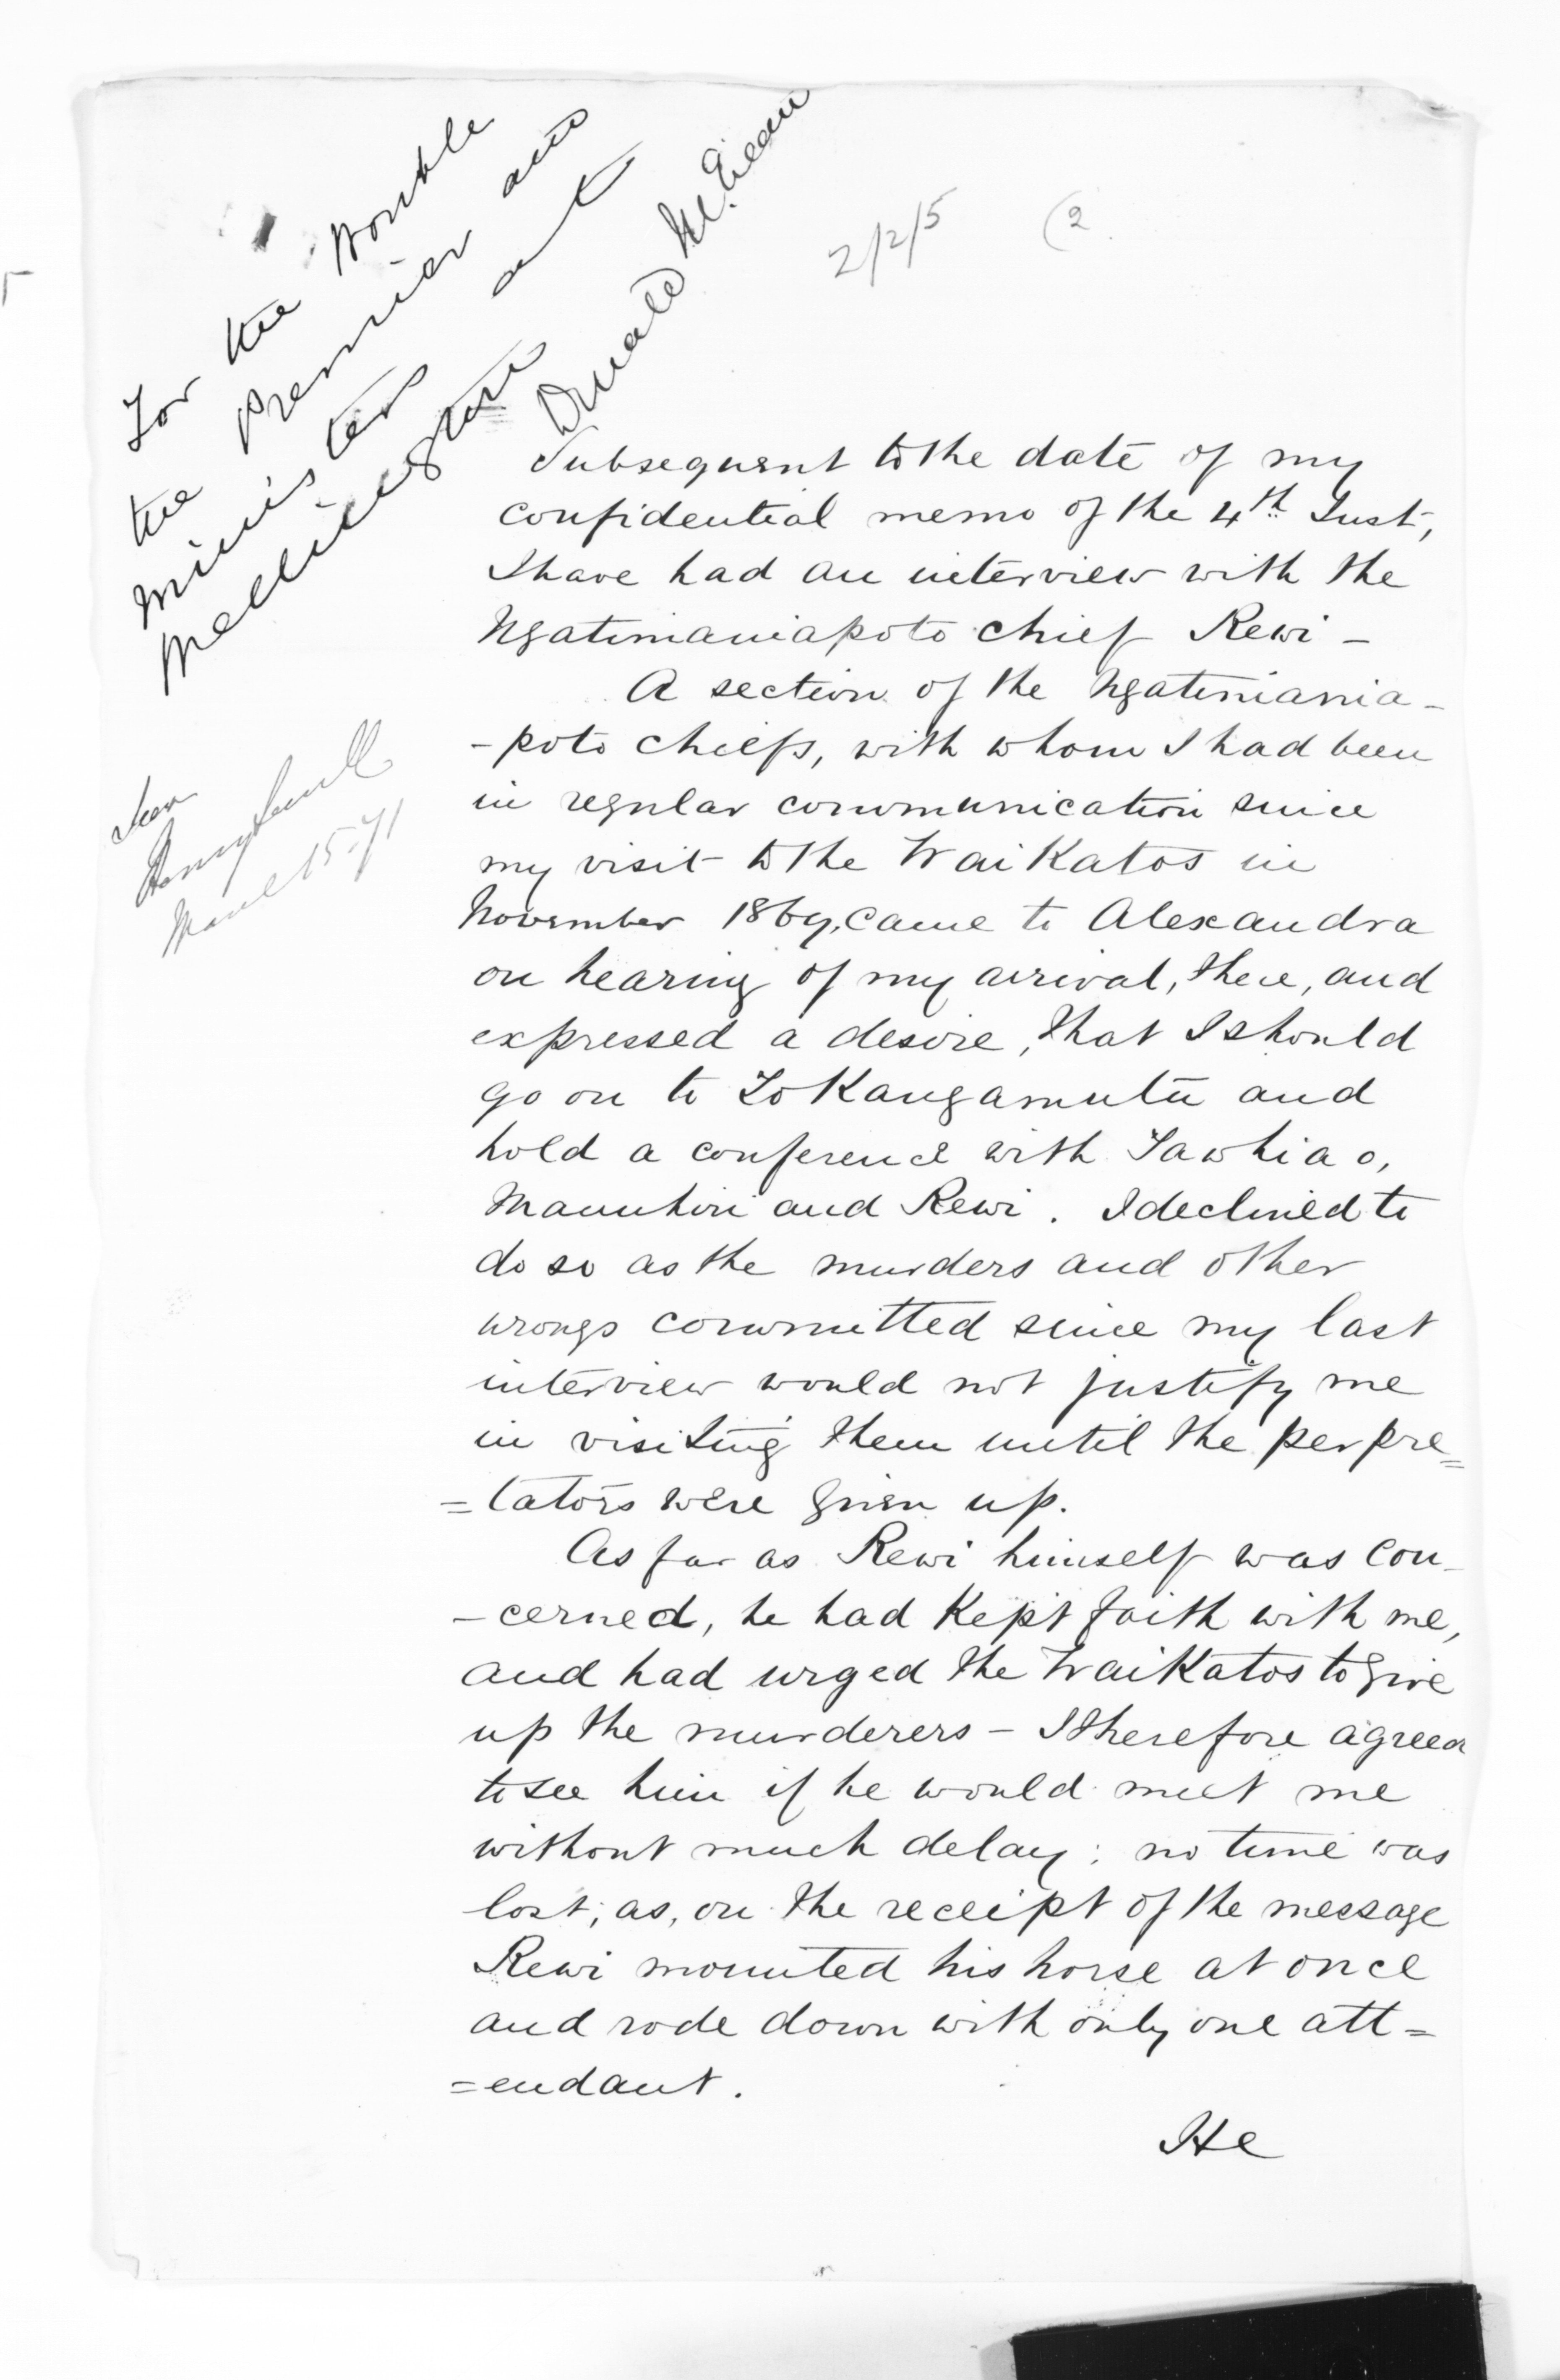 For the Honble
the Premier and
Ministers at
Wellington
Donald McLean
2/2/5
(2
Seen
March 15-71
Subsequent to the date of my
confidential memo of the 4th Inst,
I have had an interview with the
Ngatimaniapoto chief Rewi –
A section of the Ngatimania-
-poto chiefs, with whom I had been
in regular communication since
my visit to the WaiKatos in
November 1869, came to Alexandra
on hearing of my arrival, there, and
expressed a desire, that I should
go on to ToKangamutu and
hold a conference with Tawhiao,
Manuhiri and Rewi. I declined to
do so as the murders and other
wrongs committed since my last
interview would not justify me
in visiting them until the perpre=
=tators were given up.
As far as Rewi himself was con-
-cerned, he had Kept faith with me,
and had urged the WaiKatos to give
up the murderers – I therefore agreed
to see him if he would meet me
without much delay; no time was
lost; as, on the receipt of the message
Rewi mounted his horse at once
and rode down with only one att=
=endant.
He